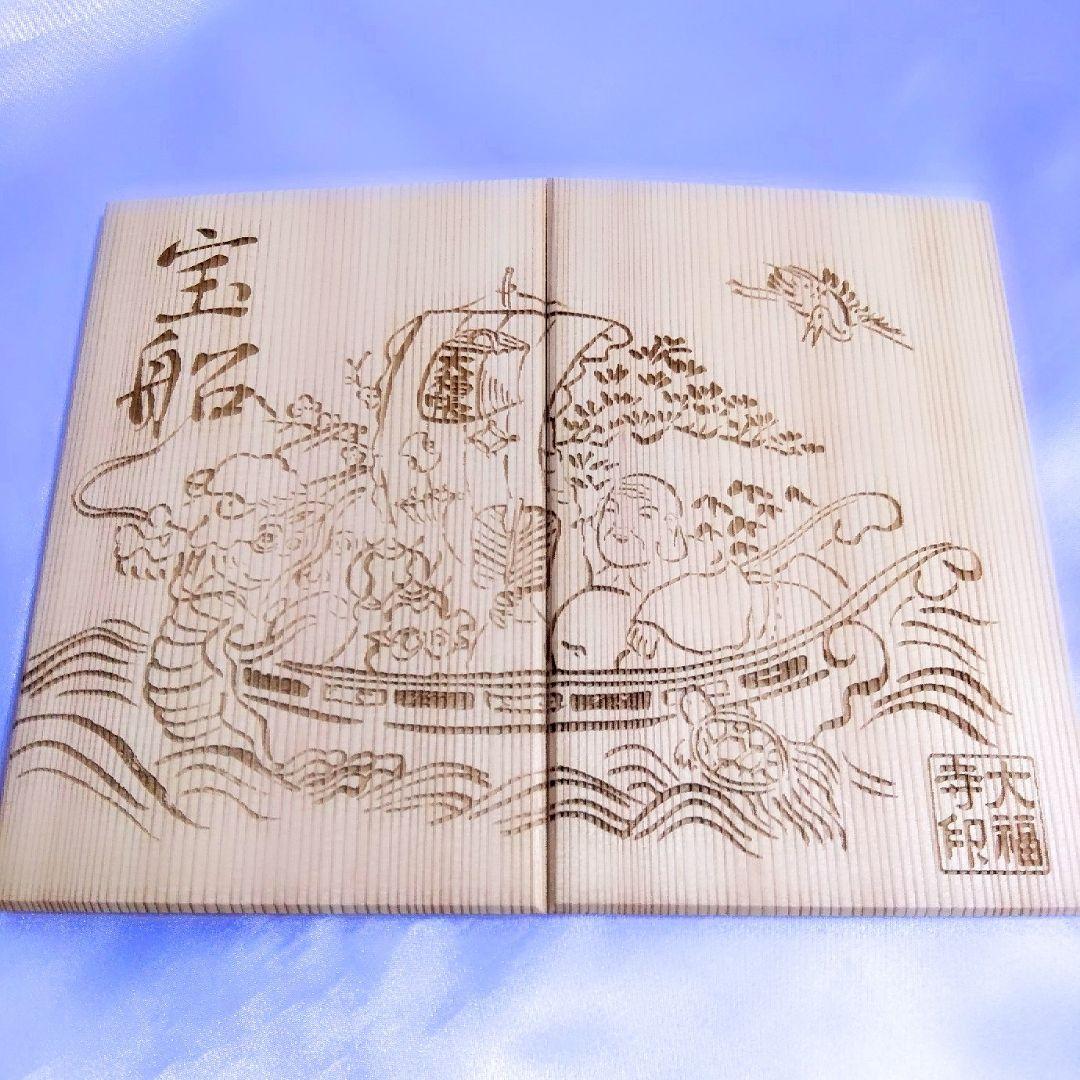 宝船
大福
寺印